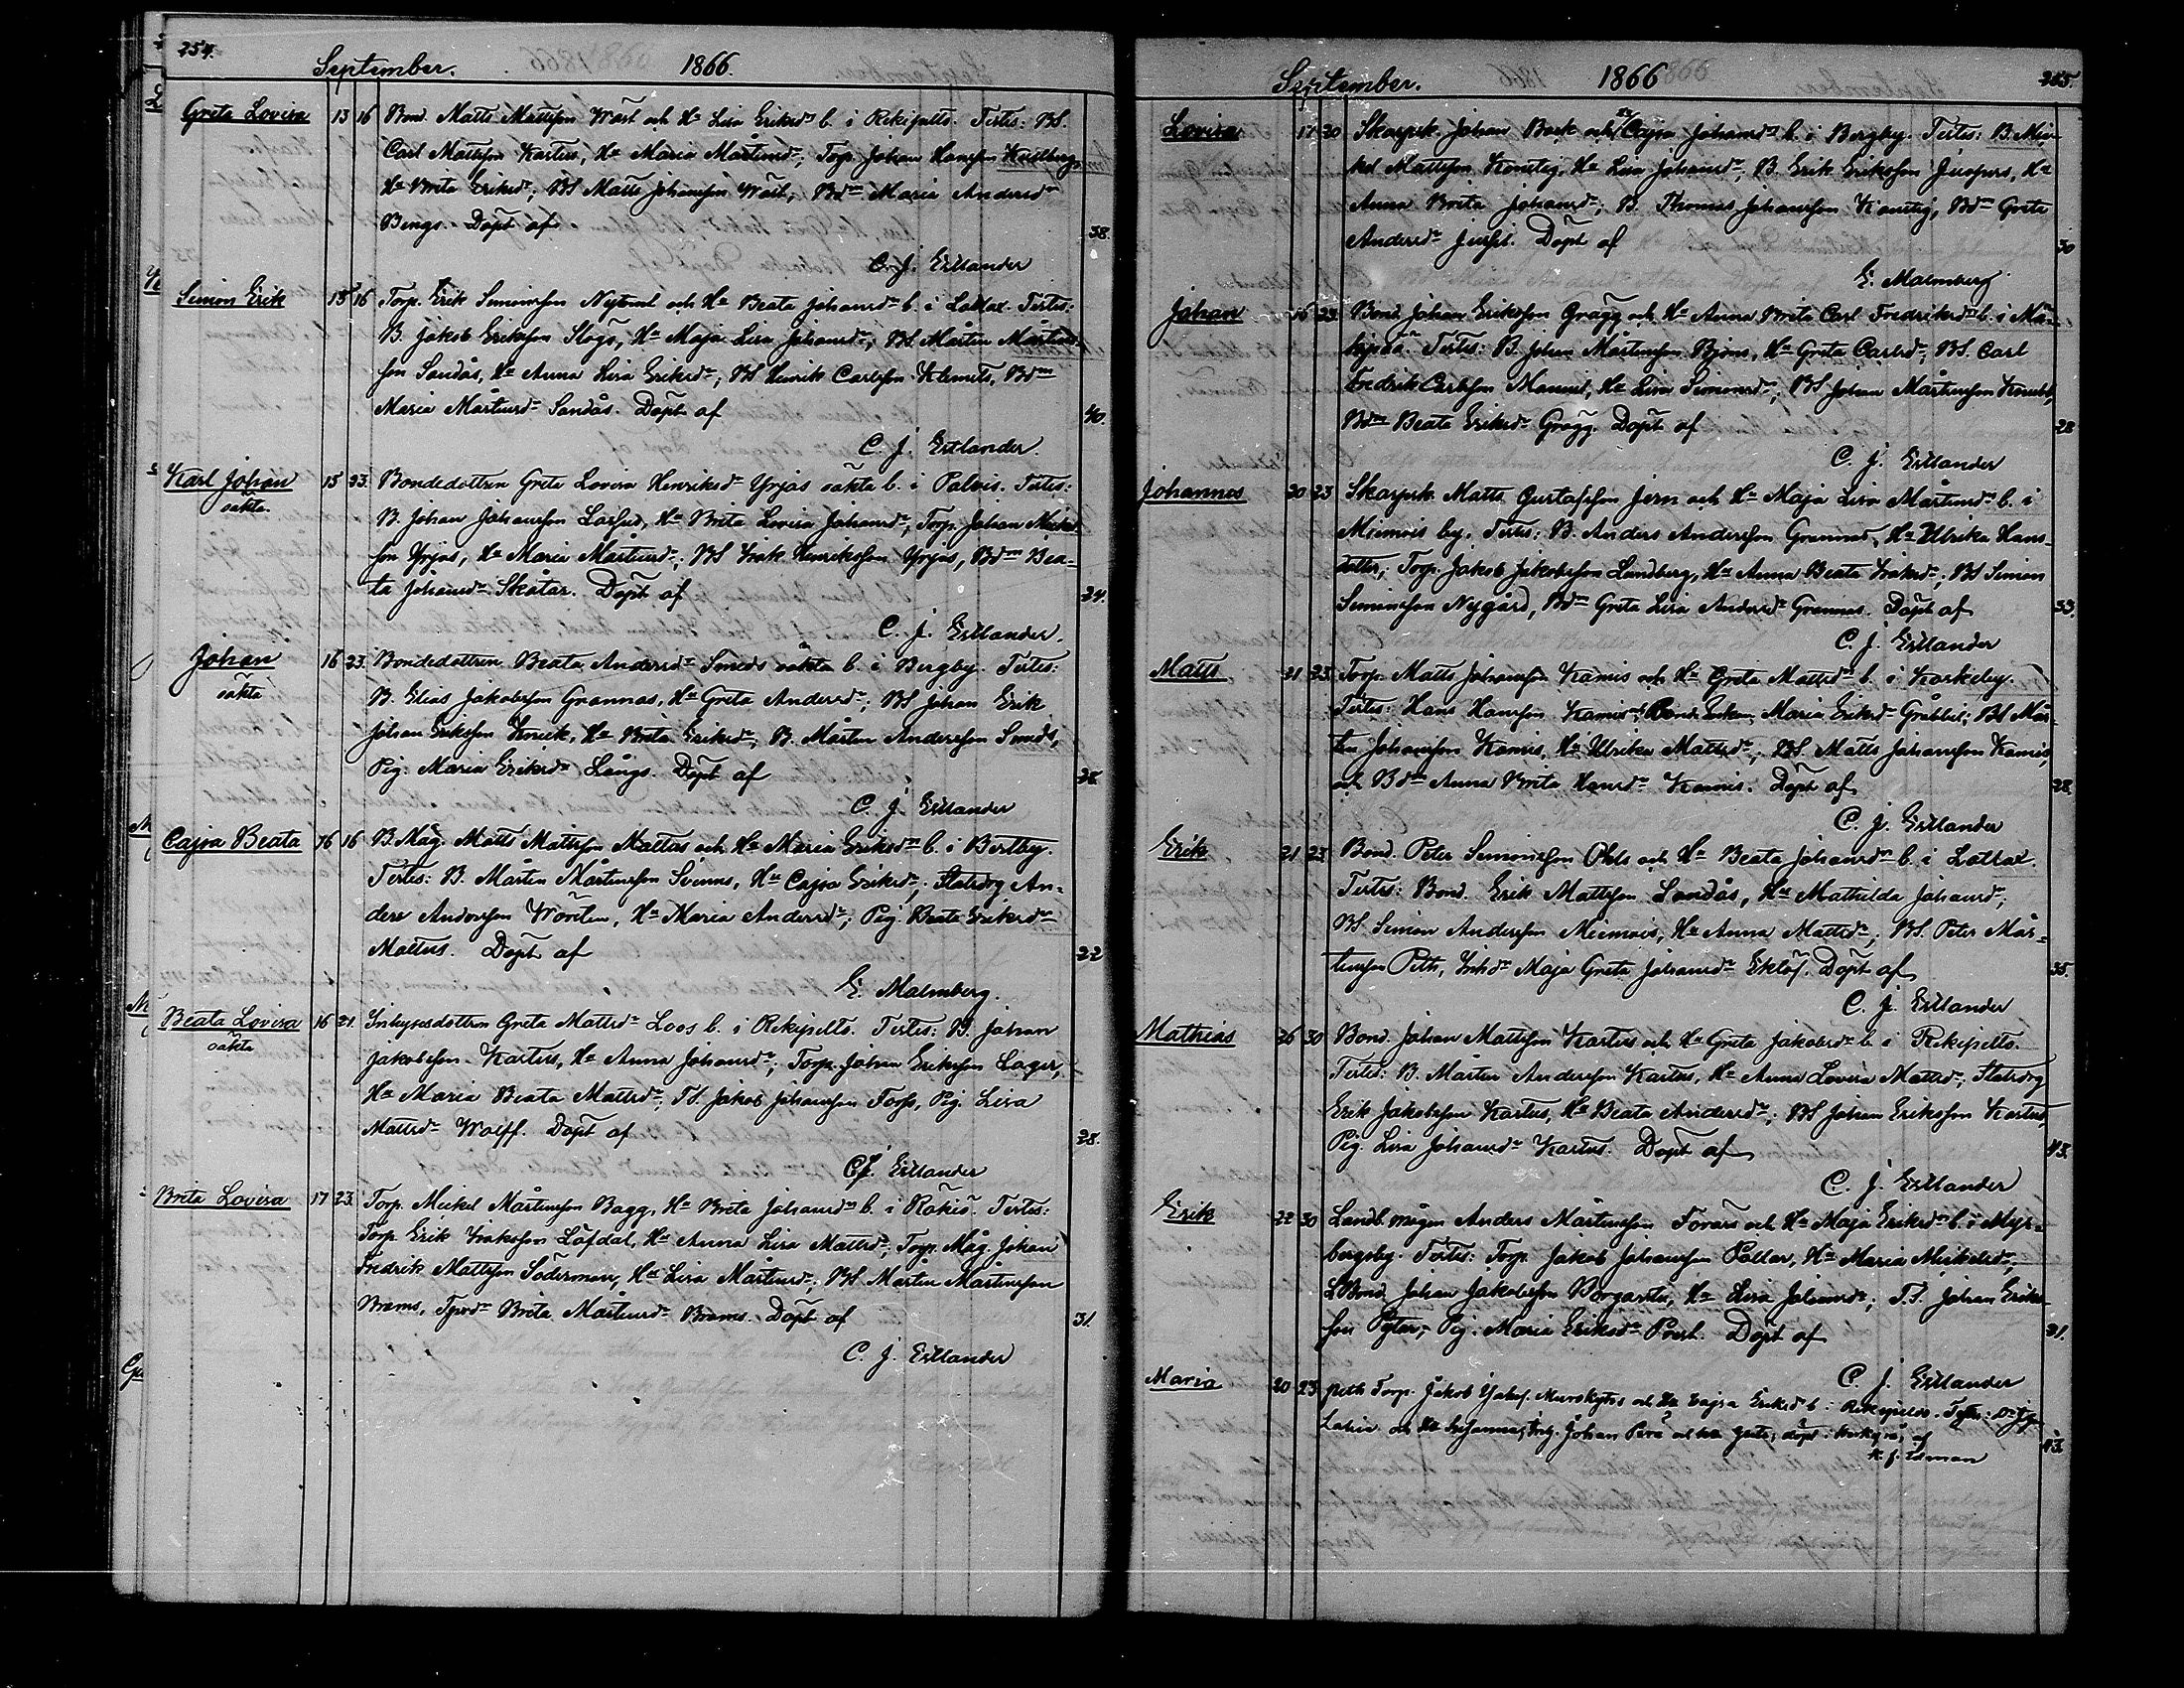 254.
September. 1866.
Greta Lovisa 13 16 Bond. Matts Mattsson Wäst och Hu Lisa Eriksdr b. i Rekipelto. Testes: BS.
Carl Mattsson Kartus, Hu Maria Mårtensdr; Torp. Johan Hansson Kullberg,
Hu Brita Eriksdr; BS Matts Johansson Wäst, Bdm Maria Andersdr
Bengs. Döpt af 38.
C. J. Estlander
Simon Erik 15 16 Torp. Erik Simonsson Nylund och Hu Beata Johansdr b. i Lattax. Testes:
B. Jakob Eriksson Skogs, Hu Maja Lisa Johansdr; BS Mårten Mårtens-
son Sandås, Hu Anna Lisa Eriksdr; BS Henrik Carlsson Klemets, Bdm
Maria Mårtensdr Sandås. Döpt af 40.
C. J. Estlander.
Karl Johan 15 23. Bondedottren Greta Lovisa Henriksdr Yrjas oäkta b. i Palvis. Testes:
oäkta.
B. Johan Johansson Lassus, Hu Brita Lovisa Johansdr; Torp. Johan Mickels-
son Yrjas, Hu Maria Mårtensdr; BS Isak Henriksson Yrjas, Bdm Bea-
ta Johansdr Skåtar. Döpt af 24.
C. J. Estlander.
Johan 16 23. Bondedottren Beata Andersdr Smeds oäkta b. i Bergby. Testes:
oäkta
B. Elias Jakobsson Grannas, Hu Greta Andersdr; BS Johan Erik
Johan Eriksson Knuck, Hu Brita Eriksdr; B. Mårten Andersson Smeds,
Pig. Maria Eriksdr Långs. Döpt af
C. J. Estlander
Cajsa Beata 16 16 B.Måg. Matts Mattsson Mattus och Hu Maria Eriksdr b. i Bertby.
Testes: B. Mårten Mårtensson Svenns, Hu Cajsa Eriksdr; Statsdrg An-
ders Andersson Wörten, Hu Maria Andersdr; Pig. Beata Eriksdr
Mattus. Döpt af 22
E. Malmberg.
Beata Lovisa 16 21. Inhysesdottren Greta Mattsdr Loos b. i Rekipelto. Testes: B. Johan
oäkta
Jakobsson Kartus, Hu Anna Johansdr; Torp. Johan Eriksson Lager,
Hu Maria Beata Mattsdr; TS. Jakob Johansson Forss, Pig. Lisa
Mattsdr Wolff. Döpt af 28.
CJ. Estlander
Brita Lovisa 17 23. Torp. Mickel Mårtensson Bagg, Hu Brita Johansdr b. i Rökiö. Testes:
Torp. Erik Isaksson Löfdal, Hu Anna Lisa Mattsdr; Torp. Måg. Johan
Fredrik Mattsson Söderman, Hu Lisa Mårtensdr; BS. Mårten Mårtensson
Brams, Tprdr Brita Mårtensdr Brams. Döpt af 31.
C. J. Estlander
September. 1866 255.
Lovisa 17 20 Skarpsk. Johan Back och Hu Cajsa Johansdr b. i Bergby. Testes: B. Mic-
kel Mattsson Konstig, Hu Lisa Johansdr; B. Erik Eriksson Juopers, Hu
Anna Brita Johansdr; B. Thomas Johansson Konstig, Bdm Greta
Andersdr. Döpt af 30
E. Malmberg
Johan 16 23. Bond. Johan Eriksson Grägg och Hu Anna Brita Carl Fredriksdr b. i Mä-
kipää. Testes: B. Johan Mårtensson Björns, Hu Greta Carlsdr; BS. Carl
Fredrik Carlsson Mannil, Hu Lisa Simonsdr; BS Johan Mårtensson Knubb,
Bdm Beata Eriksdr Grägg. Döpt af 28
C. J. Estlander
Johannes 20 23 Skarpsk. Matts Gustafsson Jern och Hu Maja Lisa Mårtensdr b. i
Miemois by. Testes: B. Anders Andersson Grannas, Hu Ulrika Hans-
dotter; Torp. Jakob Jakobsson Lundberg, Hu Anna Beata Isaksdr; BS Simon
Simonsson Nygård, Bdm Greta Lisa Andersdr Grannas. Döpt af 33.
C. J. Estlander
Matts 21 23. Torp. Matts Johansson Kamis och Hu Greta Mattsdr b. i Karkeby.
Testes: Hans Hansson Kamis, Bonde Enkan Maria Eriksdr Gräbbil; BS Mår-
ten Johansson Kamis, Hu Ulrika Mattsdr; BS. Matts Johansson Kamis,
och Bdm Anna Brita Hansdr Kamis. Döpt af 28
C. J. Estlander
Erik 21 23 Bond. Peter Simonsson Ohls och Hu Beata Johansdr b. i Lattax.
Testes: Bond. Erik Mattsson Sandås, Hu Mathilda Johansdr;
BS Simon Andersson Miemois, Hu Anna Mattsdr; BS. Peter Mår-
tensson Peth, Inhdr Maja Greta Johansdr Eklöf. Döpt af 35.
C. J. Estlander
Mathias 26 30 Bond. Johan Mattsson Kartus och Hu Greta Jakobsdr b. i Rekipelto.
Testes: B. Mårten Andersson Kartus, Hu Anna Lovisa Mattsdr; Statsdrg
Erik Jakobsson Kartus, Hu Beata Andersdr; BS Johan Eriksson Kartus,
Pig. Lisa Johansdr Kartus. Döpt af 43.
C. J. Estlander
Erik 22 30 Landb.mågen Anders Mårtensson Forars och Hu Maja Eriksdr b. i Myr-
bergsby. Testes: Torp. Jakob Johansson Pollar, Hu Maria Mickelsdr;
LBond. Johan Jakobsson Borgarsten, Hu Lisa Johansdr; T.S. Johan Eriks-
son Pytar, Pig. Maria Eriksdr Post. Döpt af 31.
C. J. Estlander
Maria 20 23 Torp. Jakob Jakobss. Murokytos och Hu Cajsa Eriksdr b. i Rekipelto.
och Hu Susanna; Johan Perä och hu Greta; döpt i af 43.
K. J. Edman